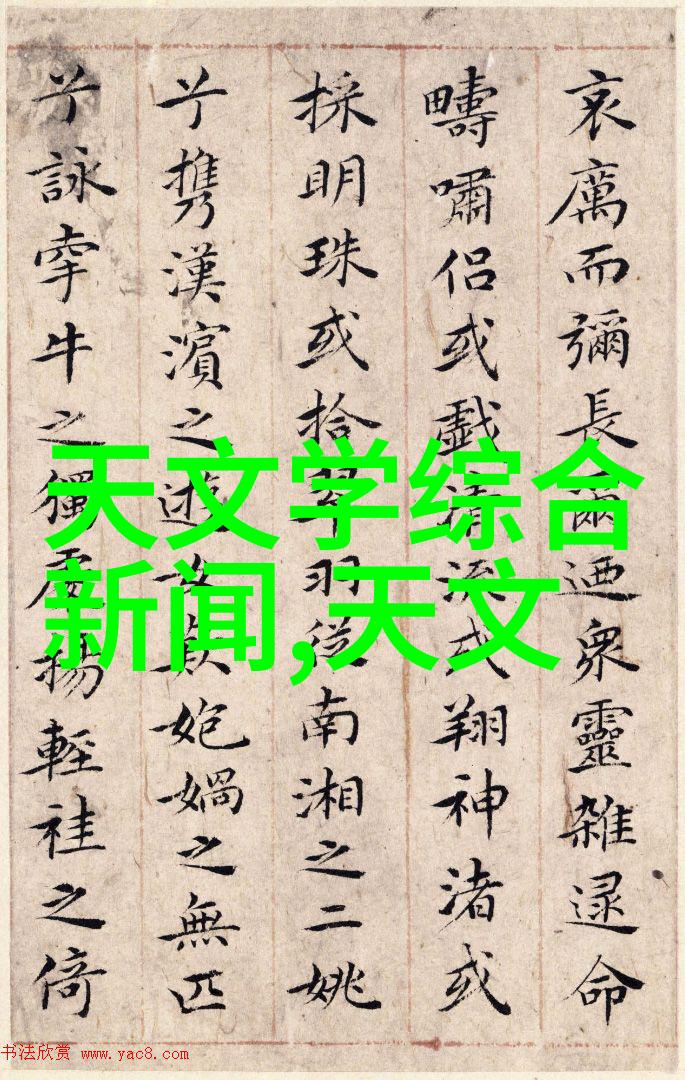 哀厲而彌長爾迺衆靈雜遝命
疇嘯侣或戲清流或翔神渚或
採明珠或拾翠羽從南湘之二姚
兮攜漢濱之遊女媧之無匹
兮詠牽牛之獨處揚輕袿之倚
天文学综合
新闻,天文
书法欣赏 www.yac8.com